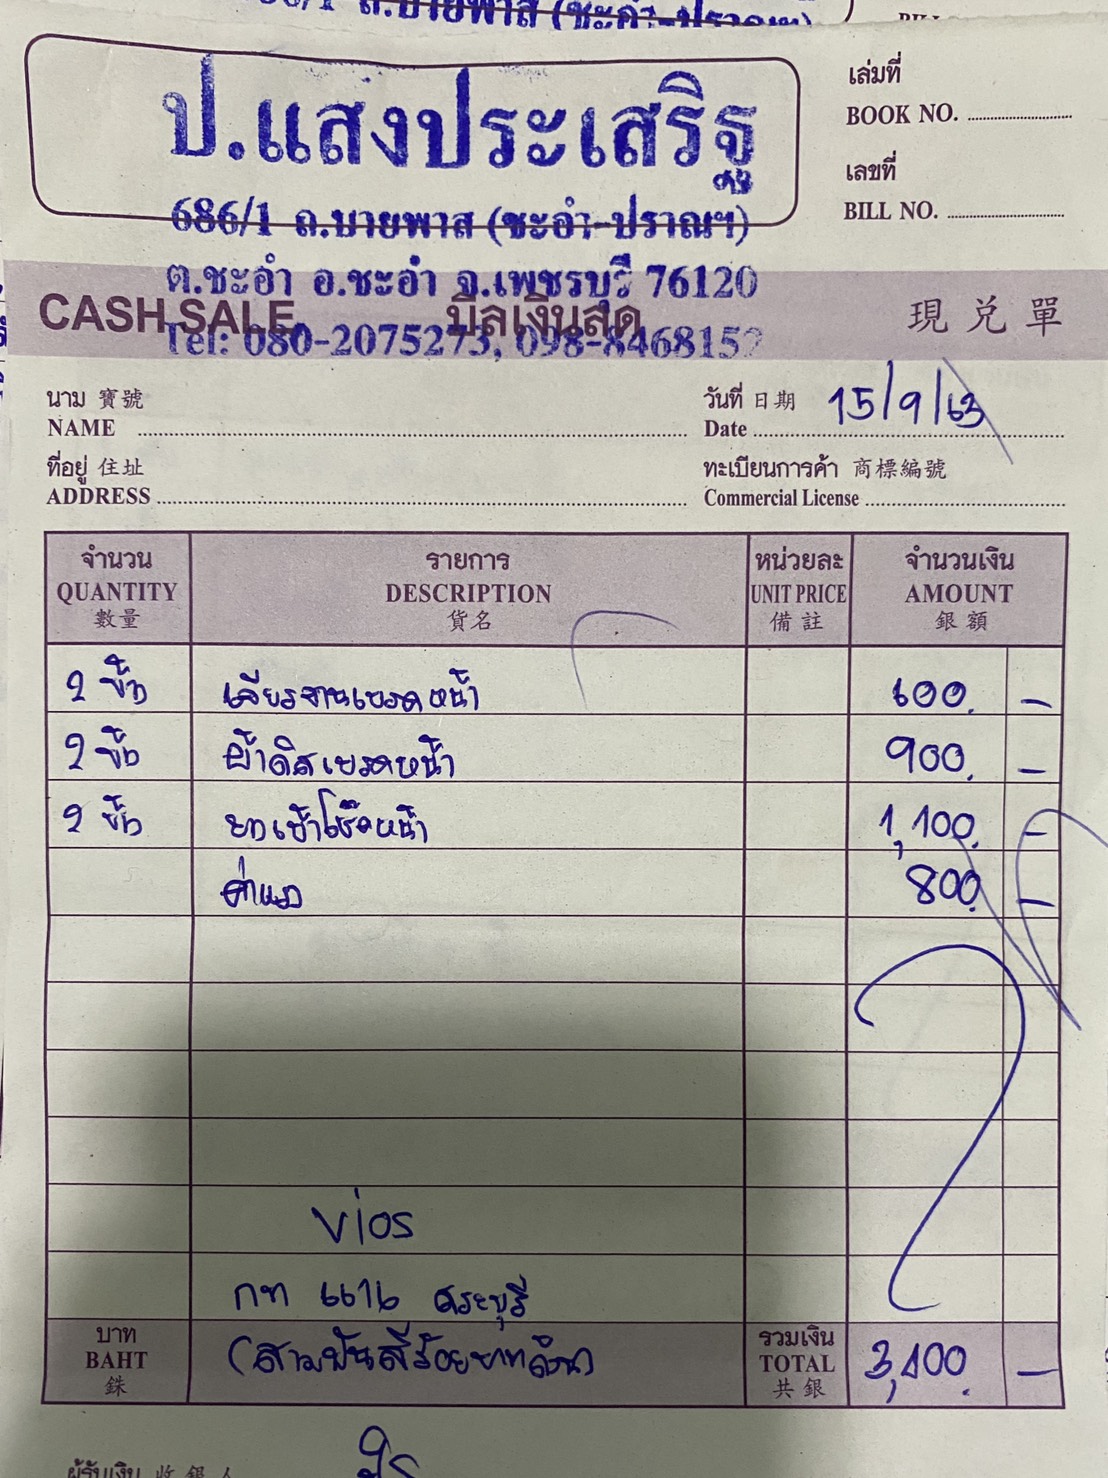 686/1 ถ.บายพาส (ชะอำ-ปราณฯ)
ป.แสงประเสริฐ
686/1 ถ.บายพาส (ชะอำ-ปราณฯ)
ต.ชะอำ อ.ชะอำ จ.เพชรบุรี 76120
Tel: 080-2075273, 098-8468152
เล่มที่
BOOK NO.
เลขที่
BILL NO.
CASH SALE บิลเงินสด 現兌單
นาม 寶號
NAME
วันที่ 日期 15/9/63
Date
ที่อยู่ 住址
ADDRESS
ทะเบียนการค้า 商標編號
Commercial License
จำนวน รายการ หน่วยละ จำนวนเงิน
QUANTITY DESCRIPTION UNIT PRICE AMOUNT
數量 貨名 備註 銀額
2 ชิ้น เจียรจานเบรคหน้า 600. –
2 ชิ้น ผ้าดิสเบรคหน้า 900. –
2 ชิ้น ยางเบ้าโช๊คหน้า 1,100. –
ค่าแรง 800. –
Vios
กท 6616 สระบุรี
บาท (สามพันสี่ร้อยบาทถ้วน) รวมเงิน 3,400. –
BAHT TOTAL
銖 共銀
ผู้รับเงิน 收銀人